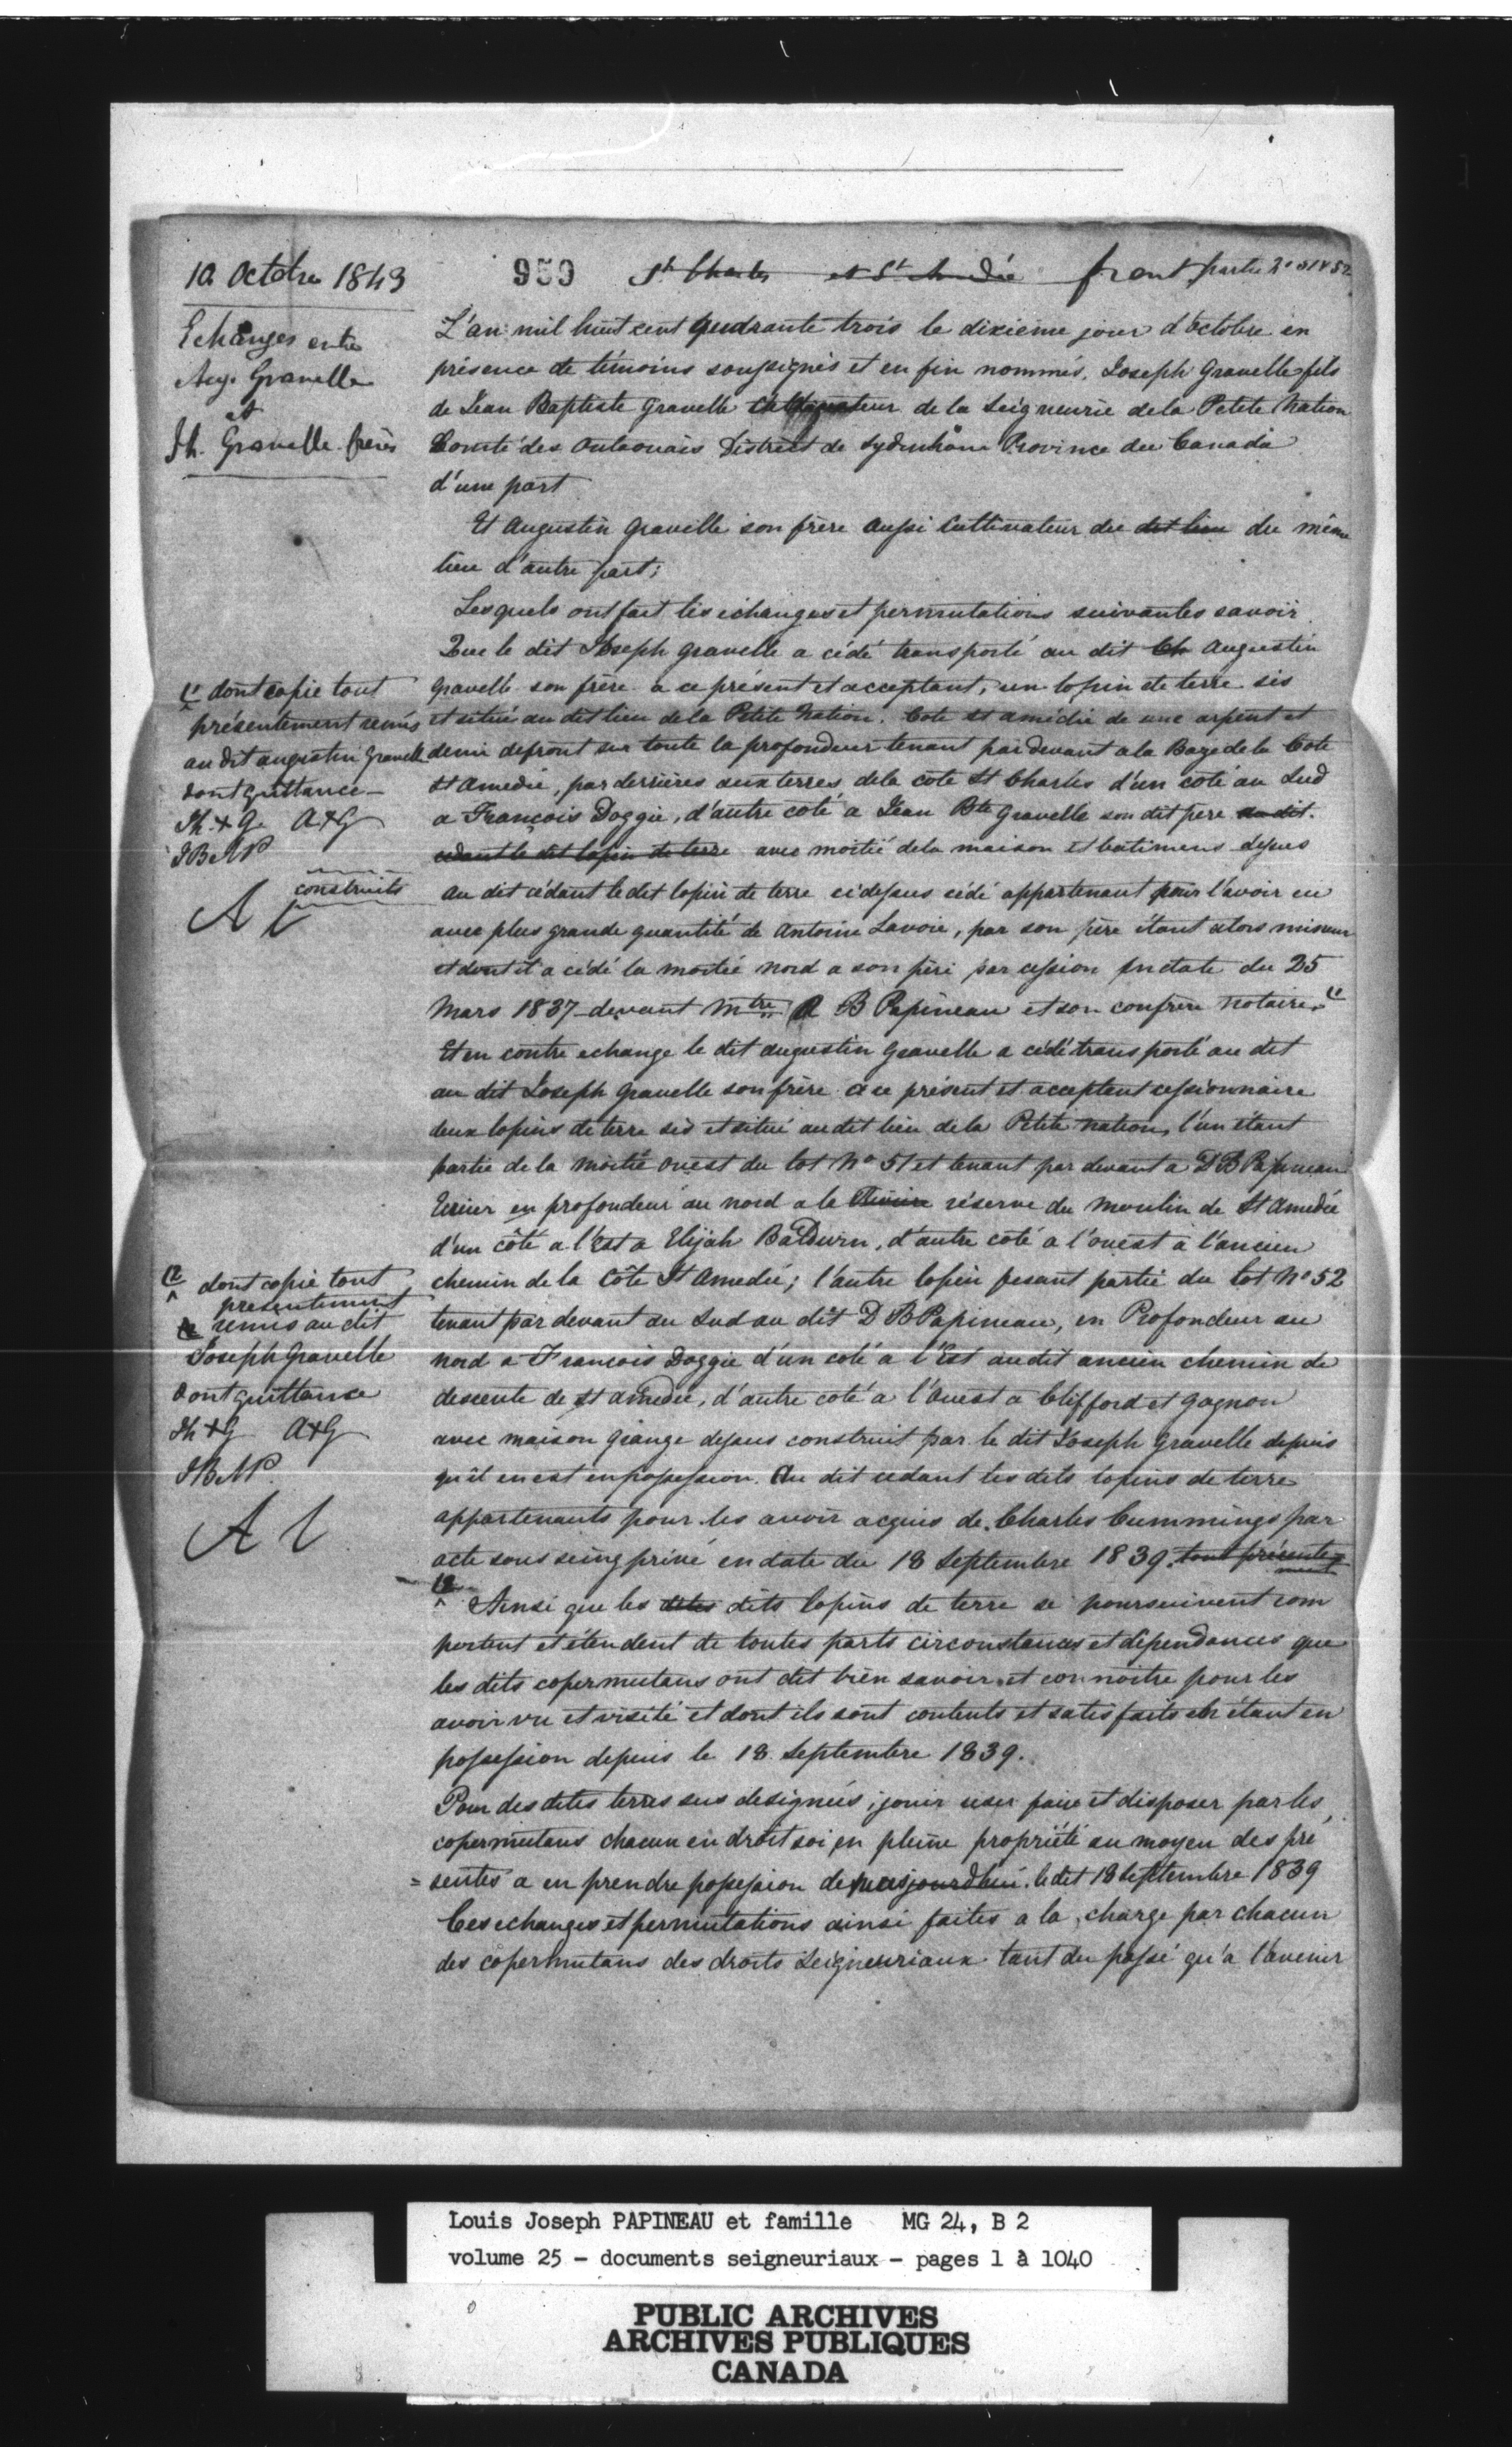 10 Octobre 1843
959 St Charles et St Amedée front partie No 51 & 52
Echanges entre
Aug. Gravelle
et
Jh. Gravelle frères
L'an mil huit cent quarante trois le dixieme jour d'octobre en
présence de témoins soussignés et en fin nommés, Joseph Gravelle fils
de Jean Baptiste Gravelle Cultivateur de la Seigneurie de la Petite Nation
Comté des Outaouais District de Sydenham Province du Canada
d'une part
Et Augustin Gravelle son frère aussi Cultivateur du dit lieu du même
lieu d'autre part;
Lesquels ont fait les échanges et permutations suivantes savoir
Que le dit Joseph Gravelle a cédé transporté au dit Ch Augustin
Gravelle son frère a ce présent et acceptant, un lopin de terre sis
et situé au dit lieu de la Petite Nation. Cote St amédée de une arpent et
demi de front sur toute la profondeur tenant par devant a la Baze de la Cote
St Amedée, par derrières aux terres de la côte St Charles d'un coté au Sud
a François Doggie, d'autre coté a Jean Bte Gravelle son dit père au dit
cedant le dit lopin de terre avec moitié de la maison et batimens dessus
au dit cédant le dit lopin de terre ci dessus cédé appartenant pour l'avoir eu
avec plus grande quantité de Antoine Lavoie, par son père étant alors mineur
et dont il a cédé la moitié nord a son père par cession en date du 25
Mars 1837 devant Mtre A B Papineau et son confrère Notaire. 11
Et en contre echange le dit Augustin Gravelle a cédé transporté au dit
au dit Joseph Gravelle son frère a ce présent et acceptant cessionnaire
deux lopins de terre sis et situé au dit lieu de la Petite Nation, l'un étant
partie de la moitié ouest du lot No 51 et tenant par devant a D B Papineau
Ecuier en profondeur au nord a la réserve du Moulin de St Amedée
d'un côté a l'Est a Elijah Baldwin, d'autre coté a l'ouest a l'ancien
chemin de la Côte St Amedée; l'autre lopin fesant partie du lot No 52
tenant par devant au Sud au dit D B Papineau, en Profondeur au
nord a François Doggie d'un coté a l'Est au dit ancien chemin de
descente de St amedée, d'autre coté a l'ouest a Clifford et Gagnon
avec maison grange dessus construit par le dit Joseph Gravelle depuis
qu'il en est en possession. Au dit cedant les dits lopins de terre
appartenants pour les avoir acquis de Charles Cummings par
acte sous seing privé en date du 18 Septembre 1839. tout présentement
12 Ainsi que les dites dits lopins de terre se poursuivent com
portent et étendent de toutes parts circonstances et dépendances que
les dits copermutans ont dit bien savoir et connoitre pour les
avoir vu et visité et dont ils sont contents et satisfaits en étant en
possession depuis le 18 Septembre 1839.
Pour des dites terres sus designées, jouir user faire et disposer par les
copermutans chacun en droit soi en pleine propriété au moyen des pré
= sentes a en prendre possession depuis jourdhui le dit 18 Septembre 1839
Ces echanges et permutations ainsi faites a la charge par chacun
des copermutans des droits Seigneuriaux tant du passé qu'a l'avenir
11 dont copie tout
présentement remis
au dit augustin Gravelle
dont quittance
Jh + G A + G
JBNP
construits
A L
12 dont copie tout
presentement
remis au dit
Joseph Gravelle
dont quittance
Jh + G A + G
JBNP
A L
Louis Joseph PAPINEAU et famille MG 24, B 2
volume 25 - documents seigneuriaux - pages 1 à 1040
PUBLIC ARCHIVES
ARCHIVES PUBLIQUES
CANADA